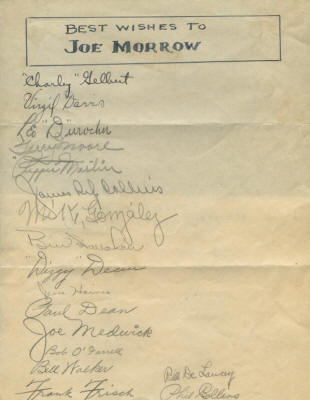 BEST WISHES TO
JOE MORROW
"Charley" Gelbert
Virgil Davis
Leo "D" Durocher
Terry Moore
"Pepper Martin
James Rip Collins
M. Gonzalez
"Dizzy" Dean
Jesse Haines
Paul Dean
Joe Medwick
Bob O'Farrell
Bill Walker
Bill De Lancey
Frank Frisch
Phil Collins